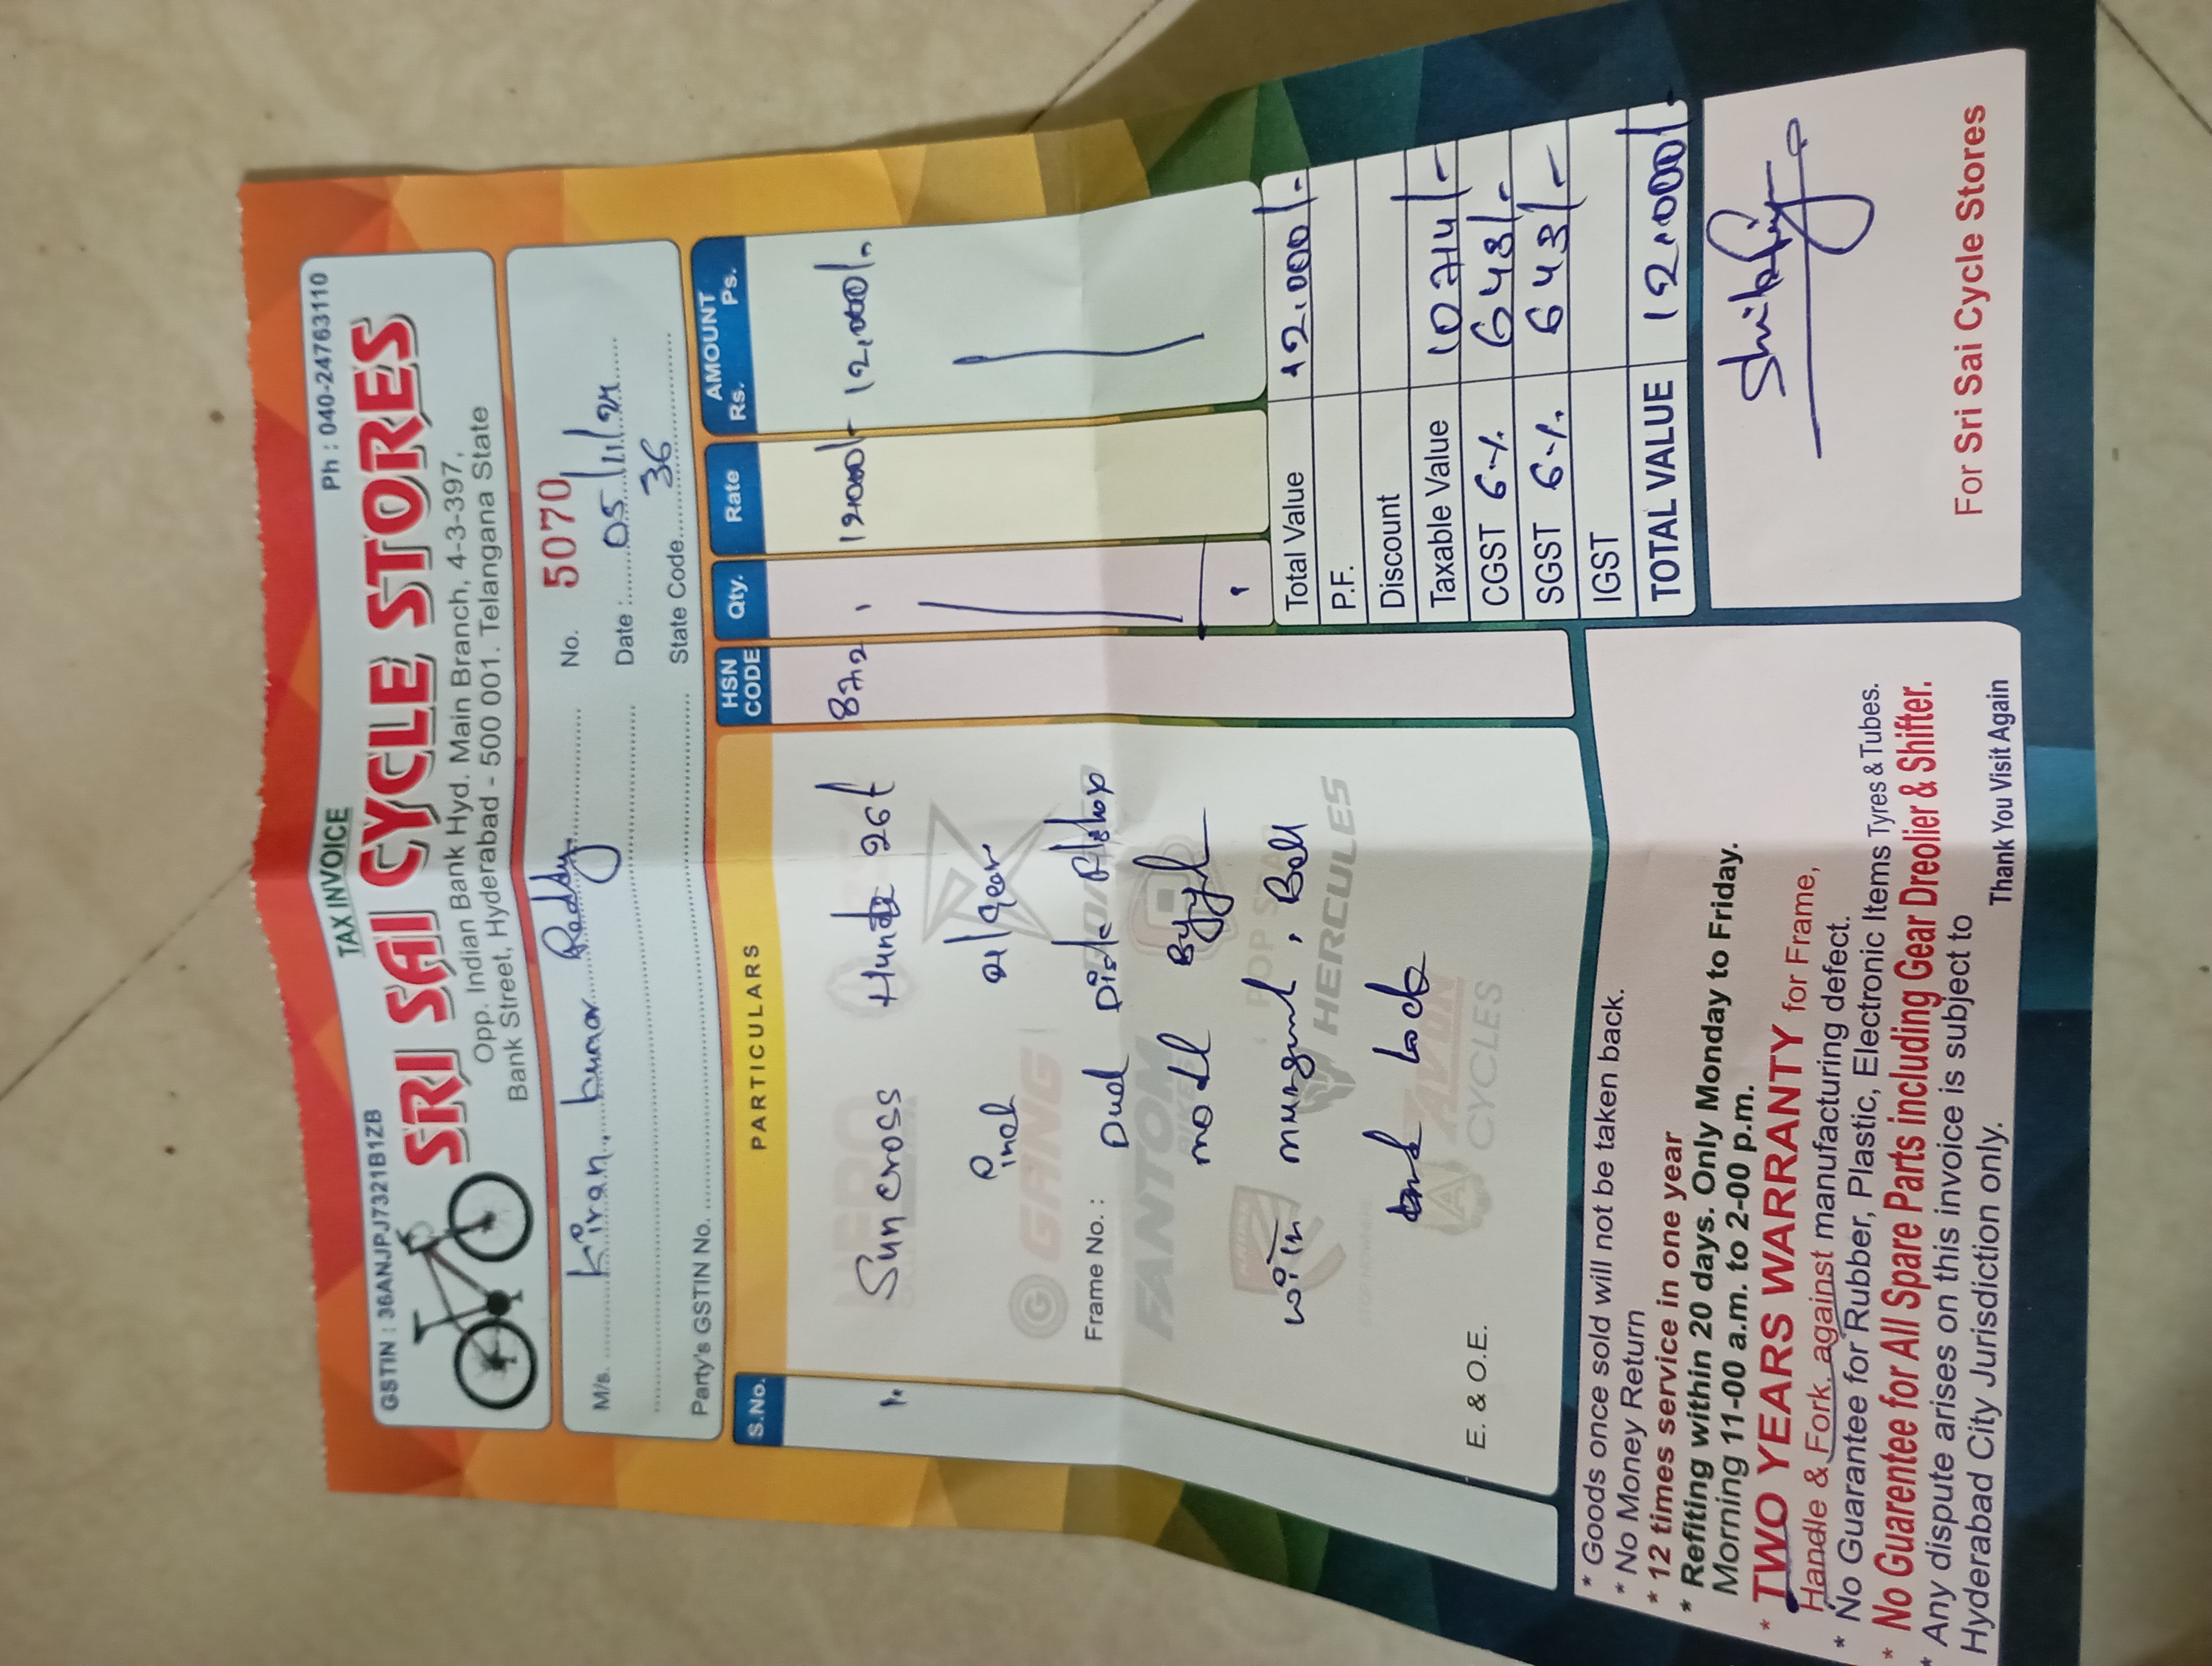 TAX INVOICE
GSTIN : 36ANJPJ7321B1ZB Ph : 040-24763110
SRI SAI CYCLE STORES
Opp. Indian Bank Hyd. Main Branch, 4-3-397,
Bank Street, Hyderabad - 500 001. Telangana State
M/s. Kiran kumar Reddy No. 5070
Date : 05/11/24
Party's GSTIN No. State Code 36
S.No. PARTICULARS HSN CODE Qty. Rate AMOUNT Rs. Ps.
1. Sun cross Hunter 26t 8712 1 12000/- 12,000/-
inch 21 gear
Frame No. : Dual Disk
with Bell
Lock
HERO
GANG
FANTOM
HERCULES
AVON
CYCLES
E. & O.E.
1
Total Value 12,000/-
P.F.
Discount
Taxable Value 10714/-
CGST 6% 643/-
SGST 6% 643/-
IGST
TOTAL VALUE 12,000/-
* Goods once sold will not be taken back.
* No Money Return
* 12 times service in one year
* Refiting within 20 days. Only Monday to Friday.
Morning 11-00 a.m. to 2-00 p.m.
* TWO YEARS WARRANTY for Frame,
Handle & Fork, against manufacturing defect.
* No Guarantee for Rubber, Plastic, Electronic Items Tyres & Tubes.
* No Guarentee for All Spare Parts including Gear Dreolier & Shifter.
* Any dispute arises on this invoice is subject to
Hyderabad City Jurisdiction only.
Thank You Visit Again
For Sri Sai Cycle Stores